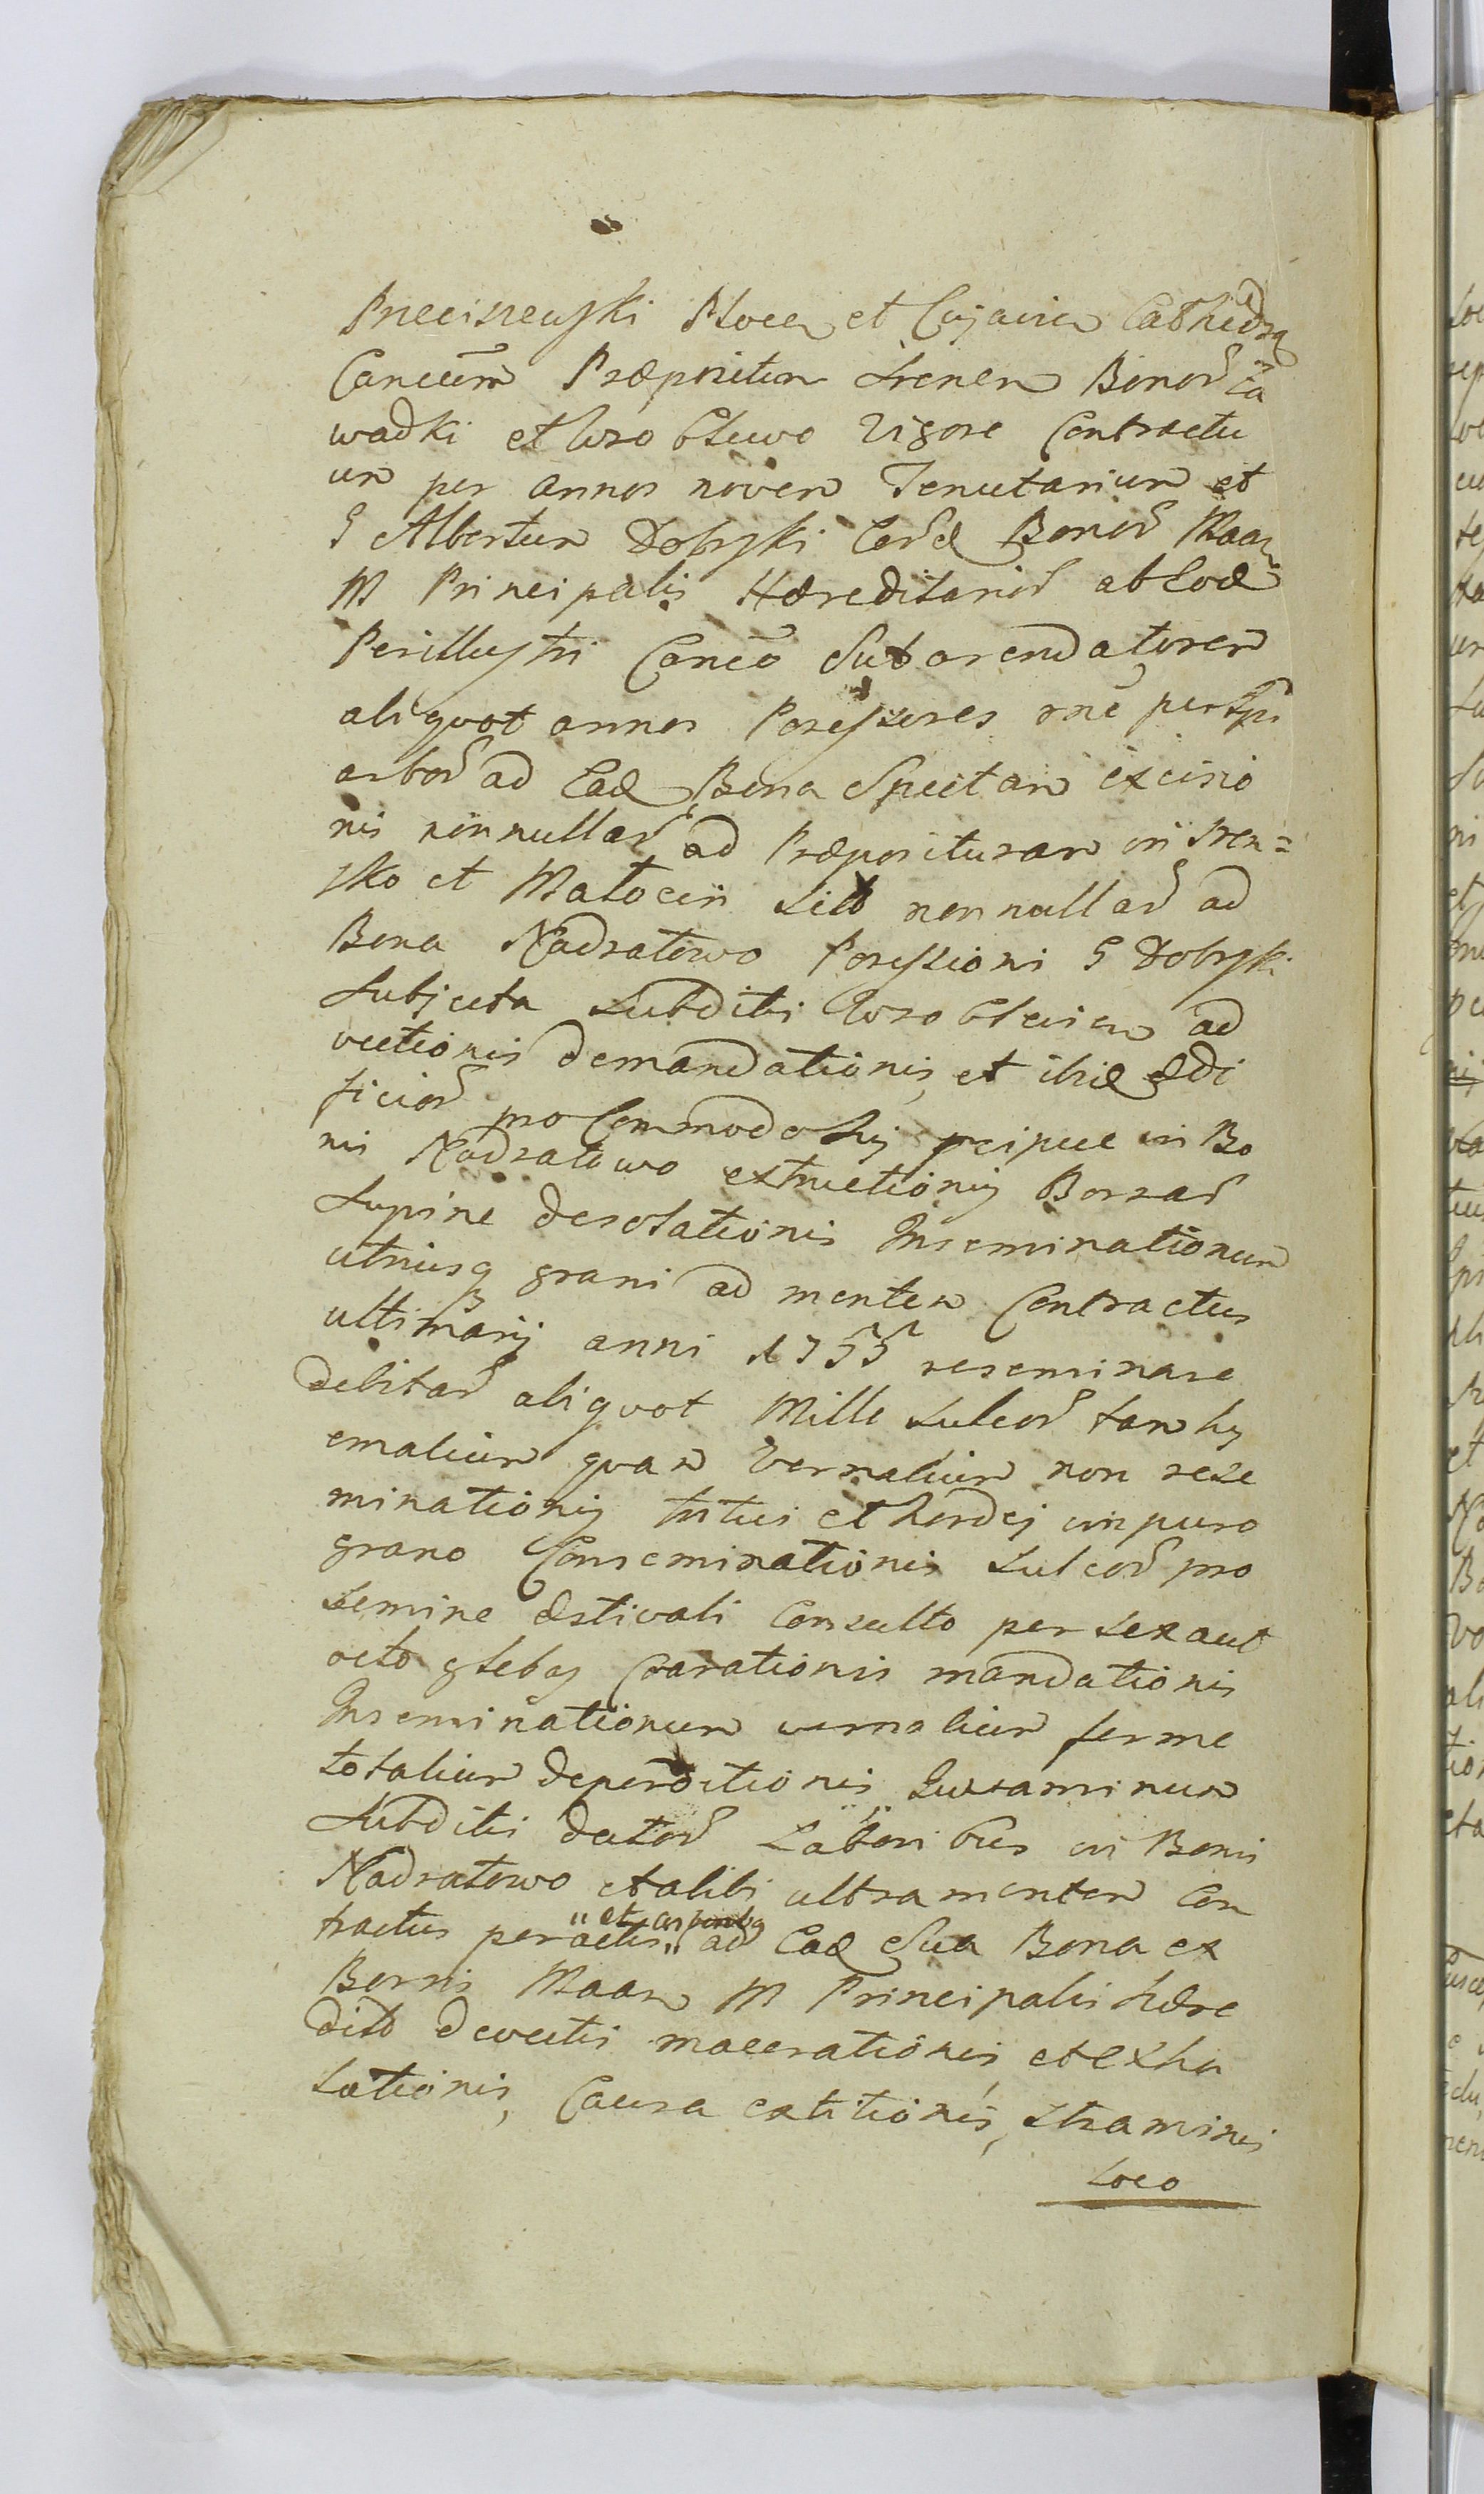 Przeciszewski Plocen et Cujavien Cathedra
Cancum Præpositum Srenen Bonor Ca
wadki et Wroblewo Vigore Contractu
um per annos novem Tenutarium et
G Albertum Dobrski Eord Bonor Maan
M Principalis Hæreditarior ab Eod
Perillustri Canco Subarendatorem
aliquot annos Possessores rne
arbor ad Ead Bona Spectan excisio
nis nonnullar ad Præposituram in Sren=
sko et Matocin sit nonnullar ad
Bona Nadratowo Possessioni G Dobrski
Subjecta Subditis Wroblevien ad
vectionis demandationis, et ibid ædi
ficior pro Commodo suis præcipue in Bo
nis Nadratowo extructionis Borrar
Supine desolationis Inseminationum
utriusq grani ad mentem Contractus
ultimarij anni 1755 reseminare
debitar aliquot Mille Sulcor tam hy
emalium quam Vernalium non rese
minationis tritici et hordei in puro
grano Conseminationis Sulcor pro
semine æstivali Consulto per sex aut
octo glebas Coarationis mandationis
Inseminationum vernalium ferme
totalium deperditionis Juraminum
Subditis dator Laboribus in Bonis
Nadratowo et alibi ultra mentem Con
tractus peractis " et " ad Ead Sua Bona ex
Bonis Maan M Principalis hære
dito devectis macerationis, et exha
lationis, Causa extitionis, Straminis
Loco